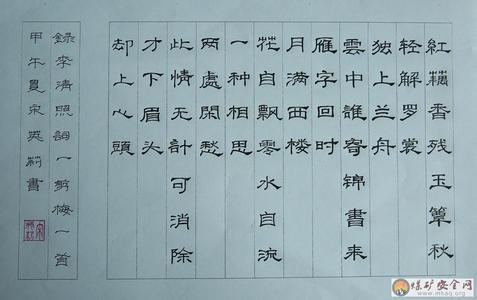 紅藕香残玉簟秋
轻解罗裳
独上兰舟
雲中誰寄锦書来
雁字回时
月满西楼
花自飘零水自流
一种相思
两處閑愁
此情无计可消除
才下眉头
却上心頭
録李清照詞一剪梅一首
甲午夏宋英莉書
煤矿安全网
www.mkaq.org